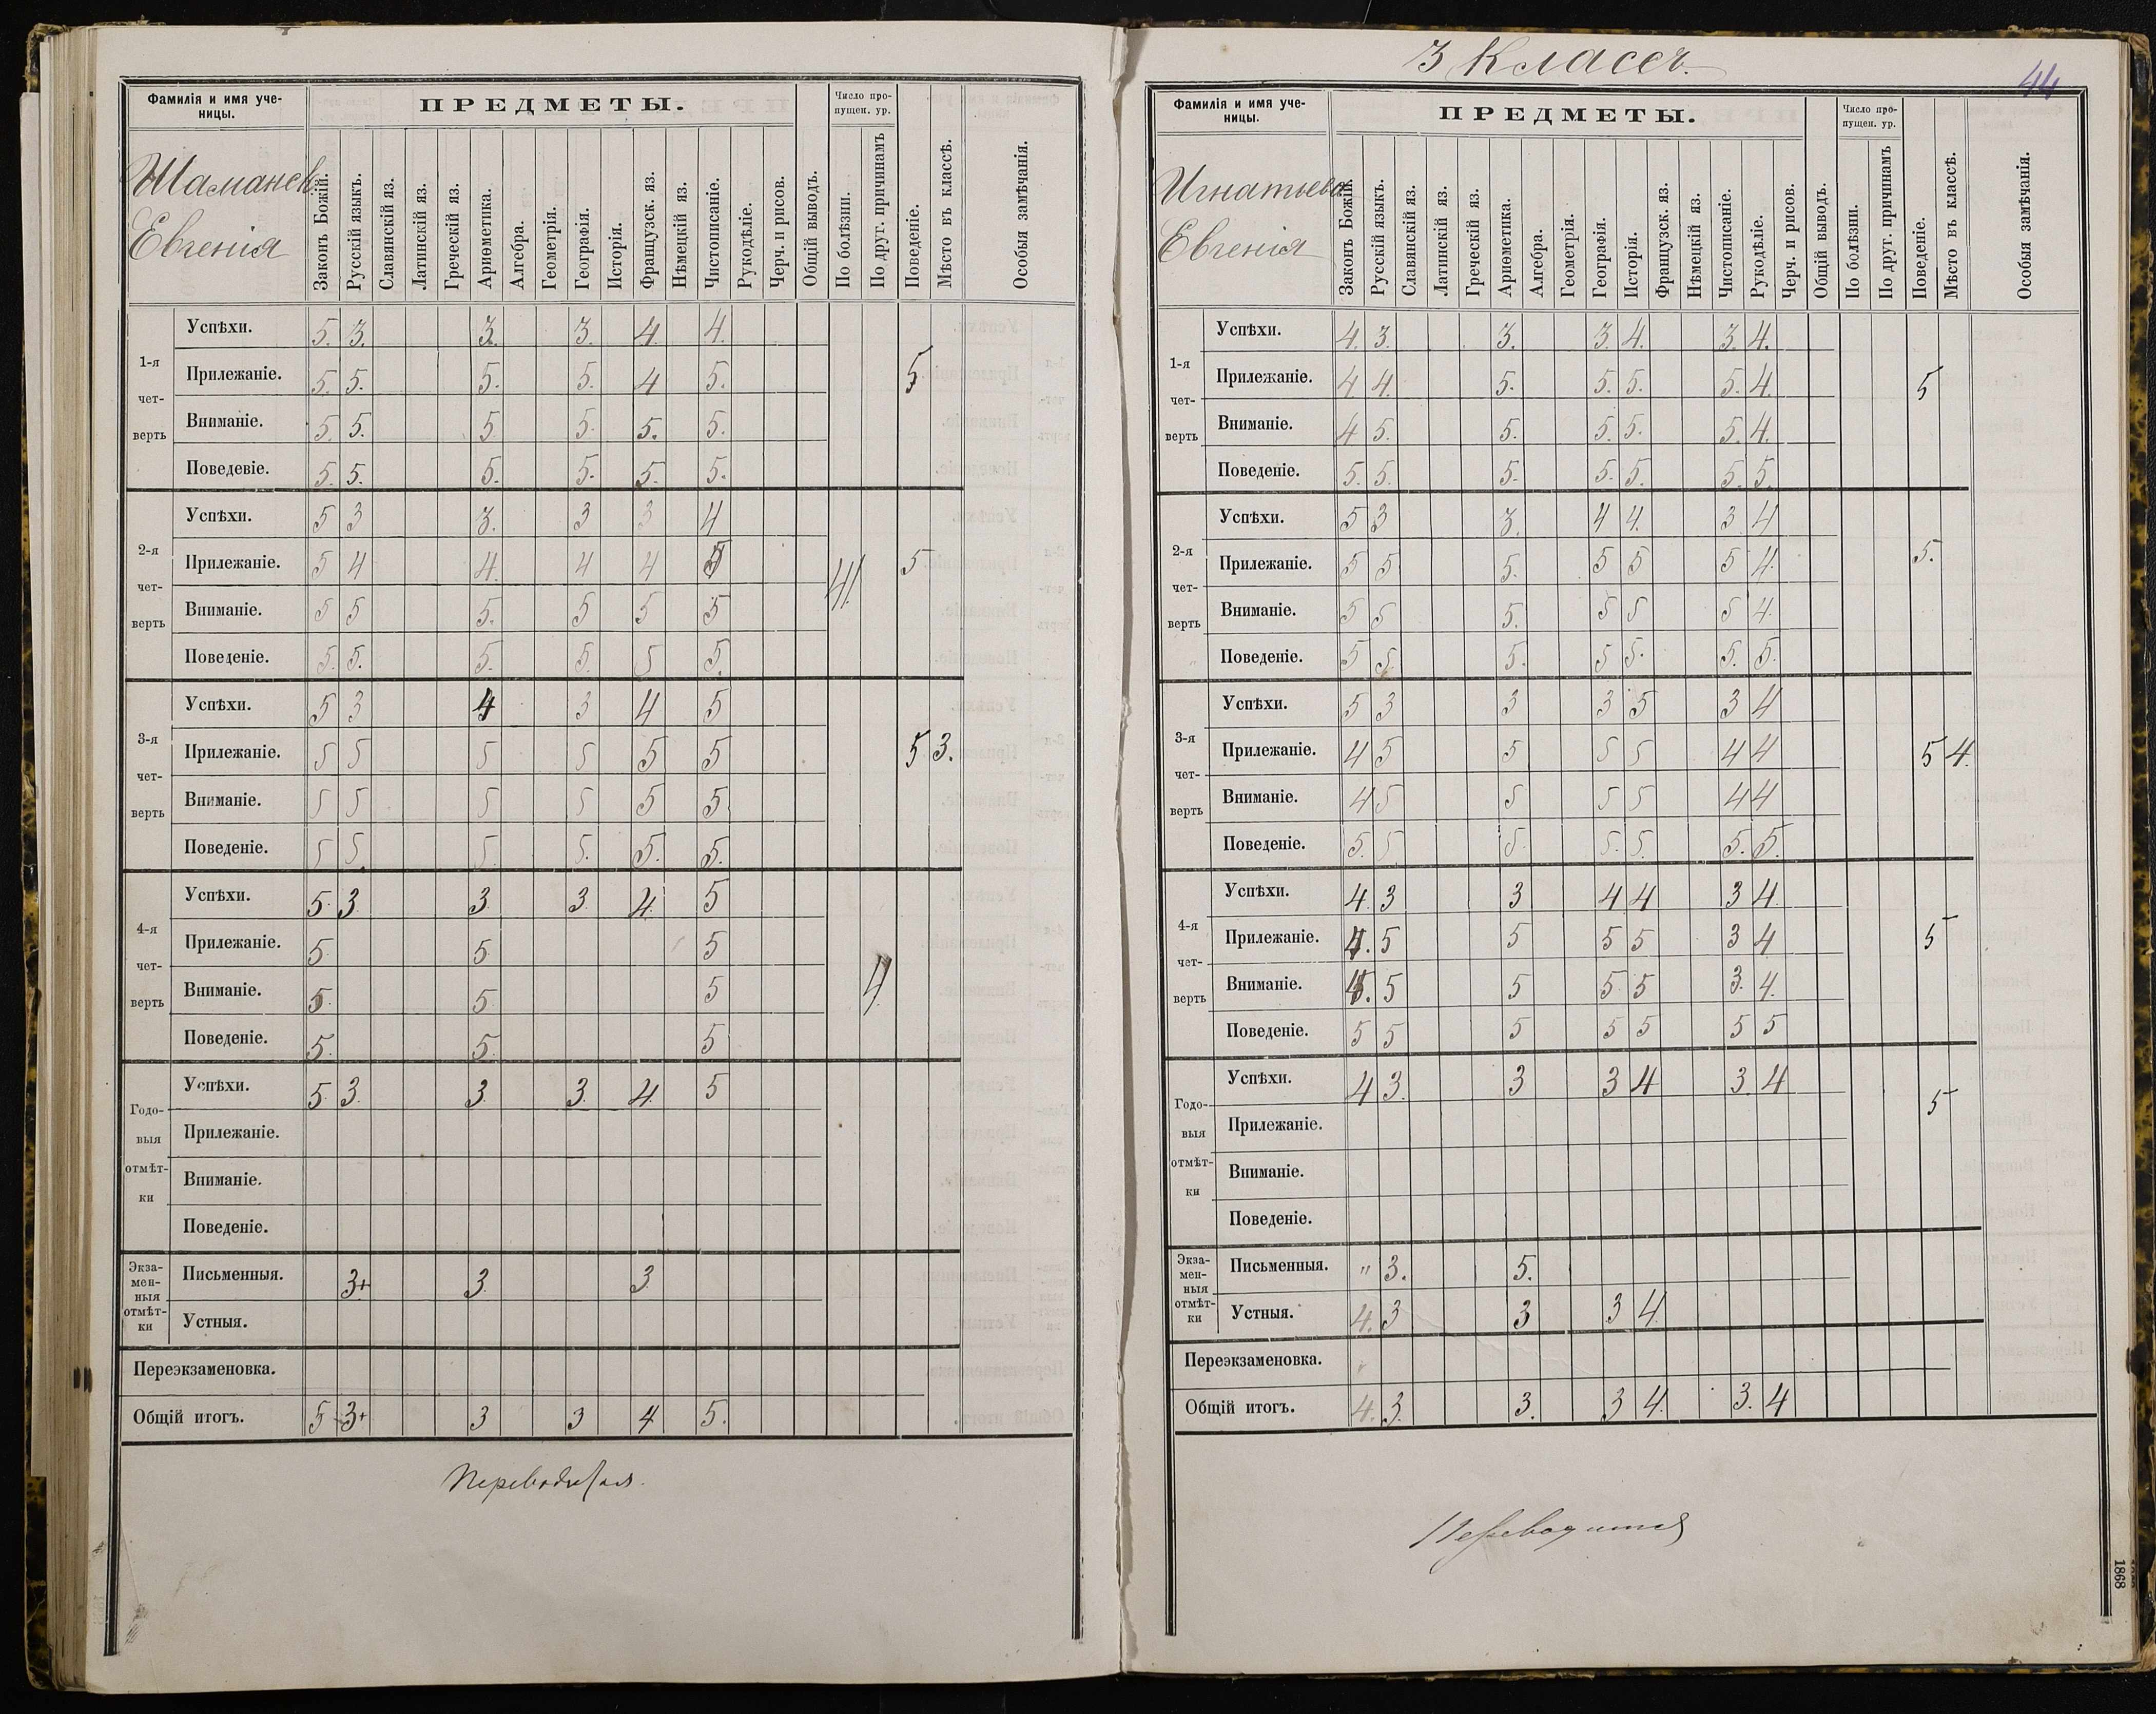 Фамилія и имя уче-
ницы.
ПРЕДМЕТЫ.
Число про-
пущен. ур.
Евгенія
Законъ Божій.
Русскій языкъ.
Славянскій яз.
Латинскій яз.
Греческій яз.
Ариѳметика.
Алгебра.
Геометрія.
Географія.
Исторія.
Французск. яз.
Нѣмецкій яз.
Чистописаніе.
Рукодѣліе.
Черч. и рисов.
Общій выводъ.
По болѣзни.
По друг. причинамъ
Поведеніе.
Мѣсто въ классѣ.
Особыя замѣчанія.
1-я чет- верть
Успѣхи. 5. 3. 3. 3. 4. 4.
Прилежаніе. 5. 5. 5. 5. 4 5. 5
Вниманіе. 5. 5. 5. 5. 5. 5.
Поведевіе. 5. 5. 5. 5. 5. 5.
2-я чет- верть
Успѣхи. 5 3 3. 3 3 4
Прилежаніе. 5 4 4. 4 4 5 41. 5
Вниманіе. 5 5 5. 5 5 5
Поведеніе. 5. 5. 5. 5. 5 5.
3-я чет- верть
Успѣхи. 5 3 4 3 4 5
Прилежаніе. 5 5 5 5 5 5 5 3.
Вниманіе. 5 5 5 5 5 5
Поведеніе. 5 5. 5. 5. 5. 5.
4-я чет- верть
Успѣхи. 5. 3 3 3. 4. 5
Прилежаніе. 5. 5. 5
Вниманіе. 5. 5 5 4
Поведеніе. 5. 5. 5
Годо- выя отмѣт- ки
Успѣхи. 5. 3. 3 3. 4. 5
Прилежаніе.
Вниманіе.
Поведеніе.
Экза- мен- ныя отмѣт- ки
Письменныя. 3+ 3. 3.
Устныя.
Переэкзаменовка.
Общій итогъ. 5 3+ 3 3 4 5.
Переводится.
3 Классъ.
44
Фамилія и имя уче-
ницы.
ПРЕДМЕТЫ.
Число про-
пущен. ур.
Игнатьева
Евгенія
Законъ Божій.
Русскій языкъ.
Славянскій яз.
Латинскій яз.
Греческій яз.
Ариѳметика.
Алгебра.
Геометрія.
Географія.
Исторія.
Французск. яз.
Нѣмецкій яз.
Чистописаніе.
Рукодѣліе.
Черч. и рисов.
Общій выводъ.
По болѣзни.
По друг. причинамъ
Поведеніе.
Мѣсто въ классѣ.
Особыя замѣчанія.
1-я чет- верть
Успѣхи. 4. 3. 3. 3. 4. 3. 4.
Прилежаніе. 4 4. 5. 5. 5. 5. 4. 5
Вниманіе. 4 5. 5. 5. 5. 5. 4.
Поведеніе. 5. 5. 5. 5. 5. 5. 5.
2-я чет- верть
Успѣхи. 5 3 3. 4 4. 3 4
Прилежаніе. 5 5 5. 5 5 5 4. 5.
Вниманіе. 5 5 5. 5 5 5 4.
Поведеніе. 5 5. 5. 5 5. 5. 5.
3-я чет- верть
Успѣхи. 5 3 3 3 5 3 4
Прилежаніе. 4 5 5 5 5 4 4 5 4.
Вниманіе. 4 5 5 5 5 4 4
Поведеніе. 5. 5 5. 5. 5. 5. 5.
4-я чет- верть
Успѣхи. 4. 3 3 4 4 3 4
Прилежаніе. 4. 5 5 5 5 3 4 5
Вниманіе. 4. 5 5 5 5 3. 4.
Поведеніе. 5 5 5 5 5 5 5
Годо- выя отмѣт- ки
Успѣхи. 4 3. 3 3 4 3. 4 5
Прилежаніе.
Вниманіе.
Поведеніе.
Экза- мен- ныя отмѣт- ки
Письменныя. " 3. 5.
Устныя. 4. 3 3 3 4
Переэкзаменовка.
Общій итогъ. 4. 3. 3. 3 4. 3. 4
Переводится
1868